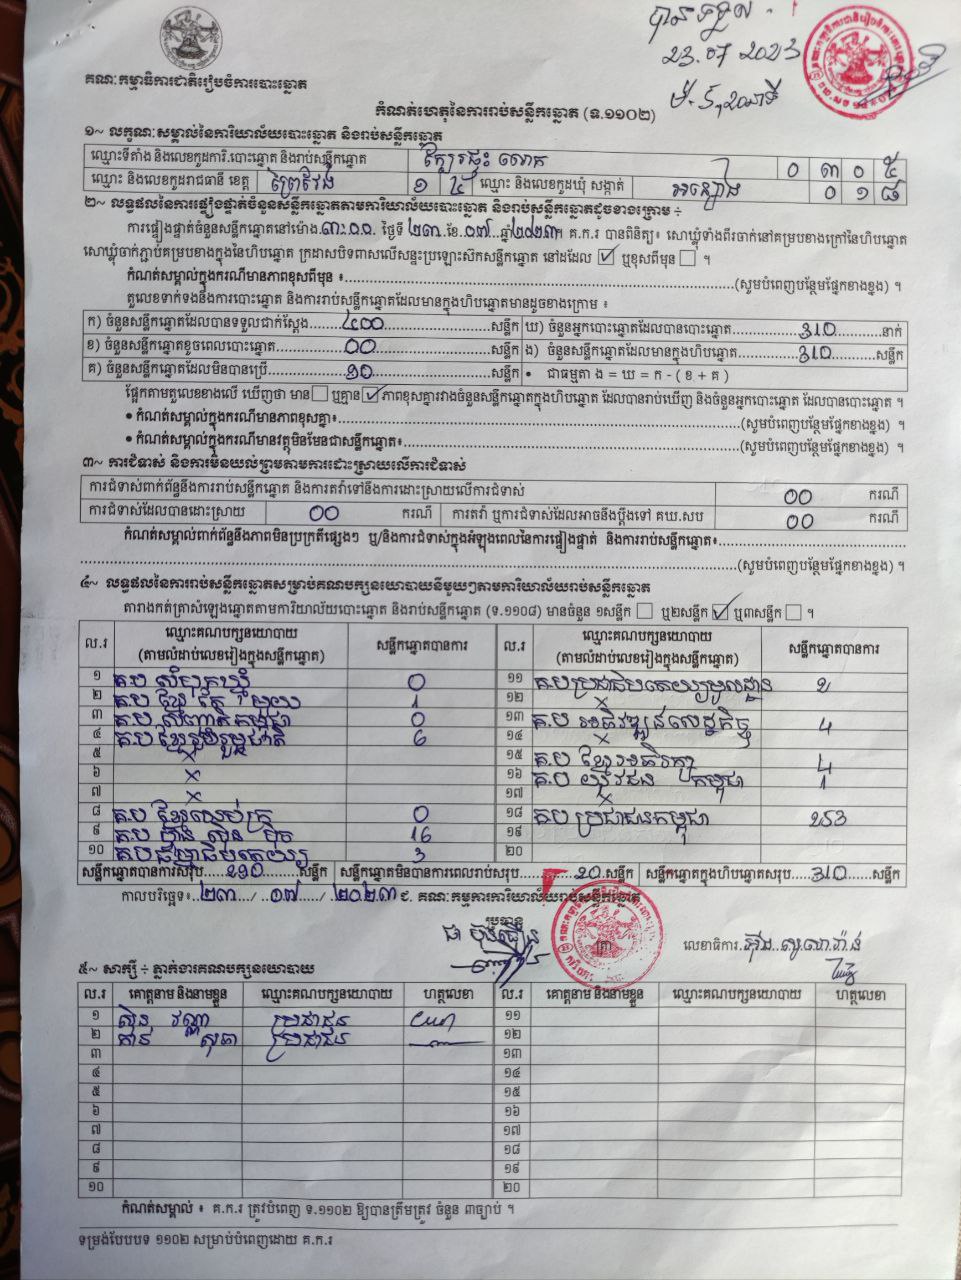 បានទទួល
23.07 2023
គណៈកម្មាធិការជាតិរៀបចំការបោះឆ្នោត
កំណត់ហេតុនៃការរាប់សន្លឹកឆ្នោត (ទ.១១០២)
១~ លក្ខណៈសម្គាល់នៃការិយាល័យបោះឆ្នោត និងរាប់សន្លឹកឆ្នោត
ឈ្មោះទីតាំង និងលេខកូដការិ.បោះឆ្នោត និងរាប់សន្លឹកឆ្នោត ០ ៣ ០ ៥
ឈ្មោះ និងលេខកូដរាជធានី ខេត្ត ព្រៃវែង ១ ៤ ឈ្មោះ និងលេខកូដឃុំ សង្កាត់ ០ ១ ៨
២~ លទ្ធផលនៃការផ្ទៀងផ្ទាត់ចំនួនសន្លឹកឆ្នោតតាមការិយាល័យបោះឆ្នោត និងរាប់សន្លឹកឆ្នោតដូចខាងក្រោម ÷
ការផ្ទៀងផ្ទាត់ចំនួនសន្លឹកឆ្នោតនៅម៉ោង ៣:០០ ថ្ងៃទី ២៣ ខែ ០៧ ឆ្នាំ ២០២៣។ គ.ក.រ បានពិនិត្យ៖ សោឃ្លុំទាំងពីរចាក់នៅគម្របខាងក្រៅនៃហិបឆ្នោត
សោឃ្លុំចាក់ភ្ជាប់គម្របខាងក្នុងនៃហិបឆ្នោត ក្រដាសបិទពាសលើសន្ទះប្រឡោះស៊កសន្លឹកឆ្នោត នៅដដែល ☑ ឬខុសពីមុន ☐ ។
កំណត់សម្គាល់ក្នុងករណីមានភាពខុសពីមុន ៖ (សូមបំពេញបន្ថែមផ្នែកខាងខ្នង) ។
តួលេខទាក់ទងនឹងការបោះឆ្នោត និងការរាប់សន្លឹកឆ្នោតដែលមានក្នុងហិបឆ្នោតមានដូចខាងក្រោម ៖
ក) ចំនួនសន្លឹកឆ្នោតដែលបានទទួលជាក់ស្តែង ៤០០ សន្លឹក ឃ) ចំនួនអ្នកបោះឆ្នោតដែលបានបោះឆ្នោត 310 នាក់
ខ) ចំនួនសន្លឹកឆ្នោតខូចពេលបោះឆ្នោត 00 សន្លឹក ង) ចំនួនសន្លឹកឆ្នោតដែលមានក្នុងហិបឆ្នោត 310 សន្លឹក
គ) ចំនួនសន្លឹកឆ្នោតដែលមិនបានប្រើ 90 សន្លឹក • ជាធម្មតា ង = ឃ = ក - ( ខ + គ )
ផ្អែកតាមតួលេខខាងលើ ឃើញថា មាន ☐ ឬគ្មាន ☑ ភាពខុសគ្នារវាងចំនួនសន្លឹកឆ្នោតក្នុងហិបឆ្នោត ដែលបានរាប់ឃើញ និងចំនួនអ្នកបោះឆ្នោត ដែលបានបោះឆ្នោត ។
• កំណត់សម្គាល់ក្នុងករណីមានភាពខុសគ្នា៖ (សូមបំពេញបន្ថែមផ្នែកខាងខ្នង) ។
• កំណត់សម្គាល់ក្នុងករណីមានវត្ថុមិនមែនជាសន្លឹកឆ្នោត៖ (សូមបំពេញបន្ថែមផ្នែកខាងខ្នង) ។
៣~ ការជំទាស់ និងការមិនយល់ព្រមតាមការដោះស្រាយលើការជំទាស់
ការជំទាស់ពាក់ព័ន្ធនឹងការរាប់សន្លឹកឆ្នោត និងការតវ៉ាទៅនឹងការដោះស្រាយលើការជំទាស់ 00 ករណី
ការជំទាស់ដែលបានដោះស្រាយ 00 ករណី ការតវ៉ា ឬការជំទាស់ដែលអាចនឹងប្តឹងទៅ គឃ.សប 00 ករណី
កំណត់សម្គាល់ពាក់ព័ន្ធនឹងភាពមិនប្រក្រតីផ្សេងៗ ឬ/និងការជំទាស់ក្នុងអំឡុងពេលនៃការផ្ទៀងផ្ទាត់ និងការរាប់សន្លឹកឆ្នោត៖
(សូមបំពេញបន្ថែមផ្នែកខាងខ្នង) ។
៤~ លទ្ធផលនៃការរាប់សន្លឹកឆ្នោតសម្រាប់គណបក្សនយោបាយនីមួយៗតាមការិយាល័យរាប់សន្លឹកឆ្នោត
តារាងកត់ត្រាសំឡេងឆ្នោតតាមការិយាល័យបោះឆ្នោត និងរាប់សន្លឹកឆ្នោត (ទ.១១០៨) មានចំនួន ១សន្លឹក ☐ ឬ២សន្លឹក ☑ ឬ៣សន្លឹក ☐ ។
ល.រ ឈ្មោះគណបក្សនយោបាយ (តាមលំដាប់លេខរៀងក្នុងសន្លឹកឆ្នោត) សន្លឹកឆ្នោតបានការ ល.រ ឈ្មោះគណបក្សនយោបាយ (តាមលំដាប់លេខរៀងក្នុងសន្លឹកឆ្នោត) សន្លឹកឆ្នោតបានការ
១ គ.ប សំបុកឃ្មុំ 0 ១១ គ.ប ប្រជាធិបតេយ្យមូលដ្ឋាន 2
២ គ.ប ខ្មែរតែមួយ 1 ១២ x
៣ គ.ប សញ្ជាតិកម្ពុជា 0 ១៣ គ.ប អភិវឌ្ឍន៍សេដ្ឋកិច្ច 4
៤ គ.ប ខ្មែររួបរួមជាតិ 6 ១៤ x
៥ x ១៥ គ.ប ខ្មែរអភិរក្ស 4
៦ x ១៦ គ.ប យុវជនកម្ពុជា 1
៧ x ១៧ x
៨ គ.ប ខ្មែរឈប់ក្រ 0 ១៨ គ.ប ប្រជាជនកម្ពុជា 253
៩ គ.ប ហ្វ៊ុនស៊ិនប៉ិច 16 ១៩
១០ គ.ប ធម្មាធិបតេយ្យ 3 ២០
សន្លឹកឆ្នោតបានការសរុប 290 សន្លឹក សន្លឹកឆ្នោតមិនបានការពេលរាប់សរុប 20 សន្លឹក សន្លឹកឆ្នោតក្នុងហិបឆ្នោតសរុប 310 សន្លឹក
កាលបរិច្ឆេទ៖ ២៣ / ០៧ / ២០២៣ ជ. គណៈកម្មការការិយាល័យរាប់សន្លឹកឆ្នោត
ប្រធាន
ត្រា លេខាធិការ
៥~ សាក្សី ÷ ភ្នាក់ងារគណបក្សនយោបាយ
ល.រ គោត្តនាម និងនាមខ្លួន ឈ្មោះគណបក្សនយោបាយ ហត្ថលេខា ល.រ គោត្តនាម និងនាមខ្លួន ឈ្មោះគណបក្សនយោបាយ ហត្ថលេខា
១ ស៊ិន វណ្ណា ប្រជាជន ១១
២ សុខា ប្រជាជន ១២
៣ ១៣
៤ ១៤
៥ ១៥
៦ ១៦
៧ ១៧
៨ ១៨
៩ ១៩
១០ ២០
កំណត់សម្គាល់ ៖ គ.ក.រ ត្រូវបំពេញ ទ.១១០២ ឱ្យបានត្រឹមត្រូវ ចំនួន ៣ច្បាប់ ។
ទម្រង់បែបបទ ១១០២ សម្រាប់បំពេញដោយ គ.ក.រ